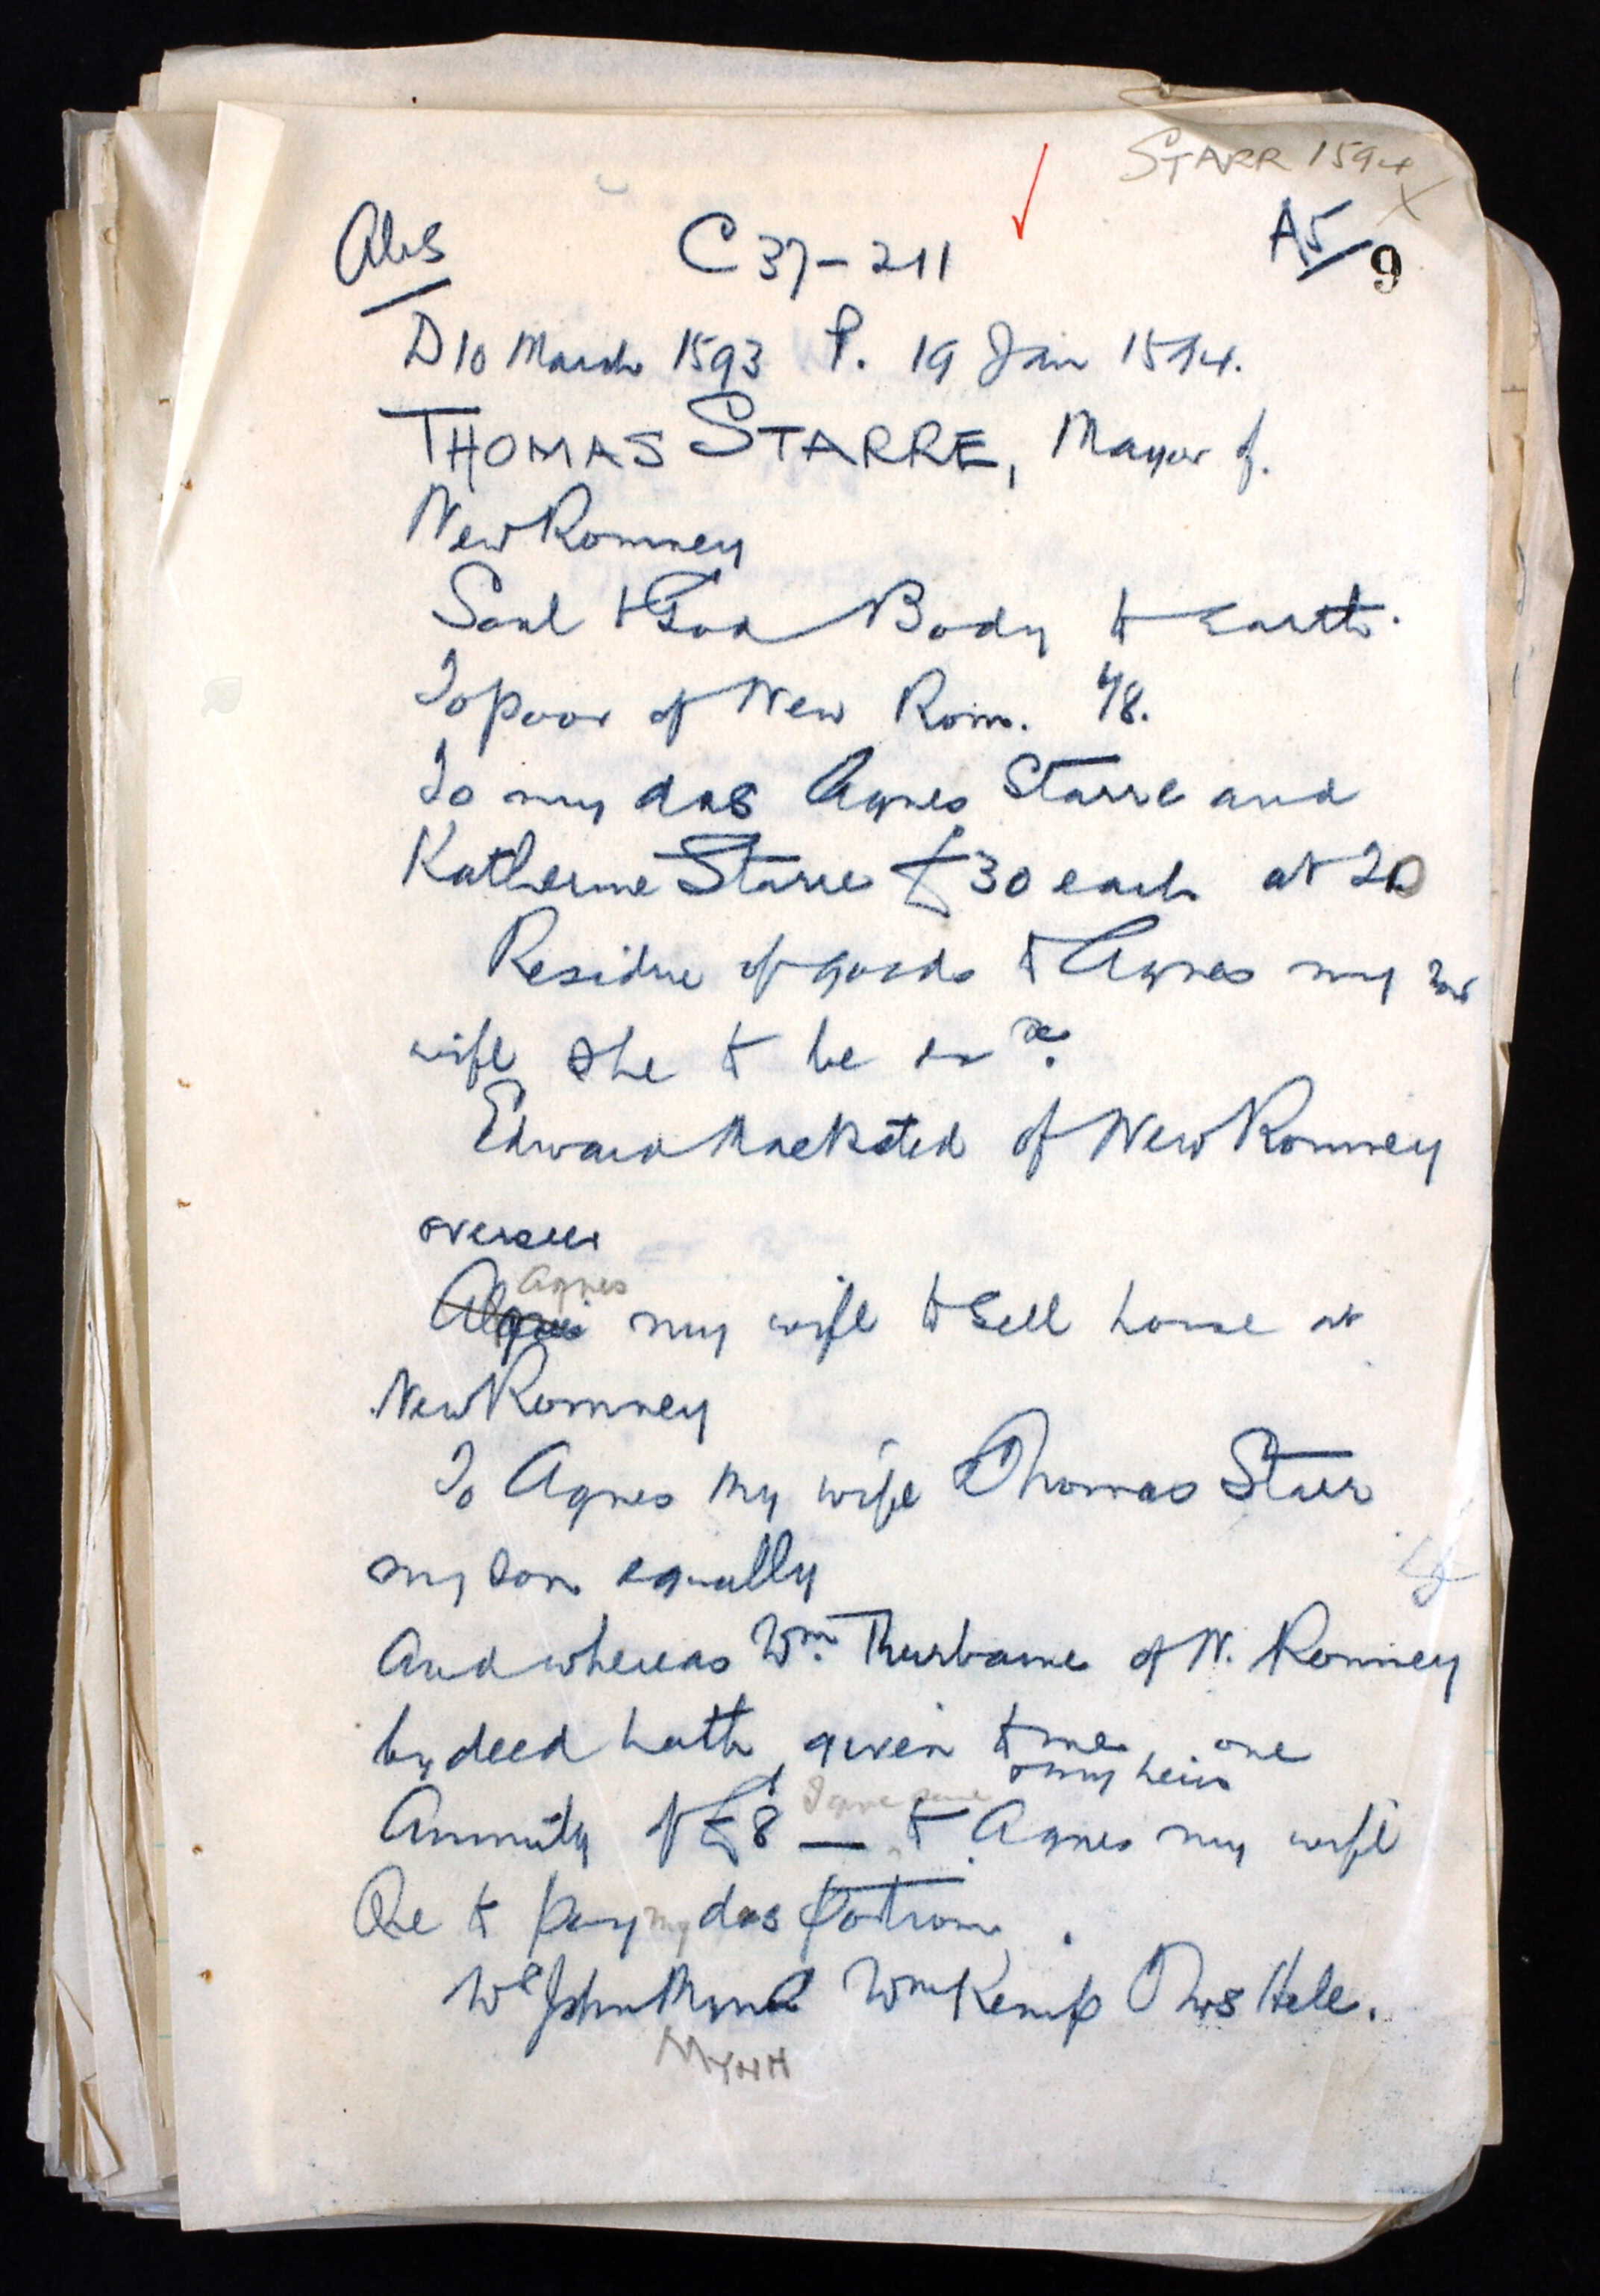 STARR 1594 X
Abs C 37-211 A5/9
D 10 March 1593 P. 19 Jan 1594.
THOMAS STARRE, Mayor of.
New Romney
Soul to God Body to earth.
To poor of New Rom.
To my das Agnes Starre and
Katherine Starre £30 each at 20
Residue of goods to Agnes my now
wife she to be exx.
Edward Macksted of New Romney
overseer
Agnes
my wife to sell house at
New Romney
To Agnes my wife Thomas Starr
my son equally
And whereas Wm. Thurbarne of N. Romney
by deed hath given to me one
or my heirs
Annuity of £8 — I give same to Agnes my wife
She to pay my das portions.
Ws John Mynn Wm Kemp Thos Hele.
MYNN